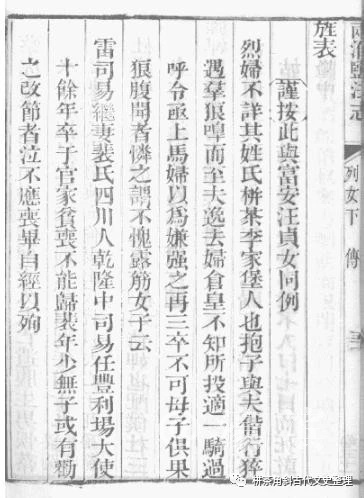 旌表
謹按此與富安汪貞女同例
烈婦不詳其姓氏栟茶李家堡人也抱子與夫偕行猝
遇羣狼嘷而至夫逸去婦倉皇不知所投適一騎過
呼令亟上馬婦以為嫌强之再三卒不可母子俱果
狼腹聞者憐之謂不愧露筋女子云
雷司易繼妻裴氏四川人乾隆中司易任豐利場大使
十餘年卒于官家貧喪不能歸裴年少無子或有勸
之改節者泣不應喪畢自經以殉
列女下 傳
栟茶角斜古代文史整理